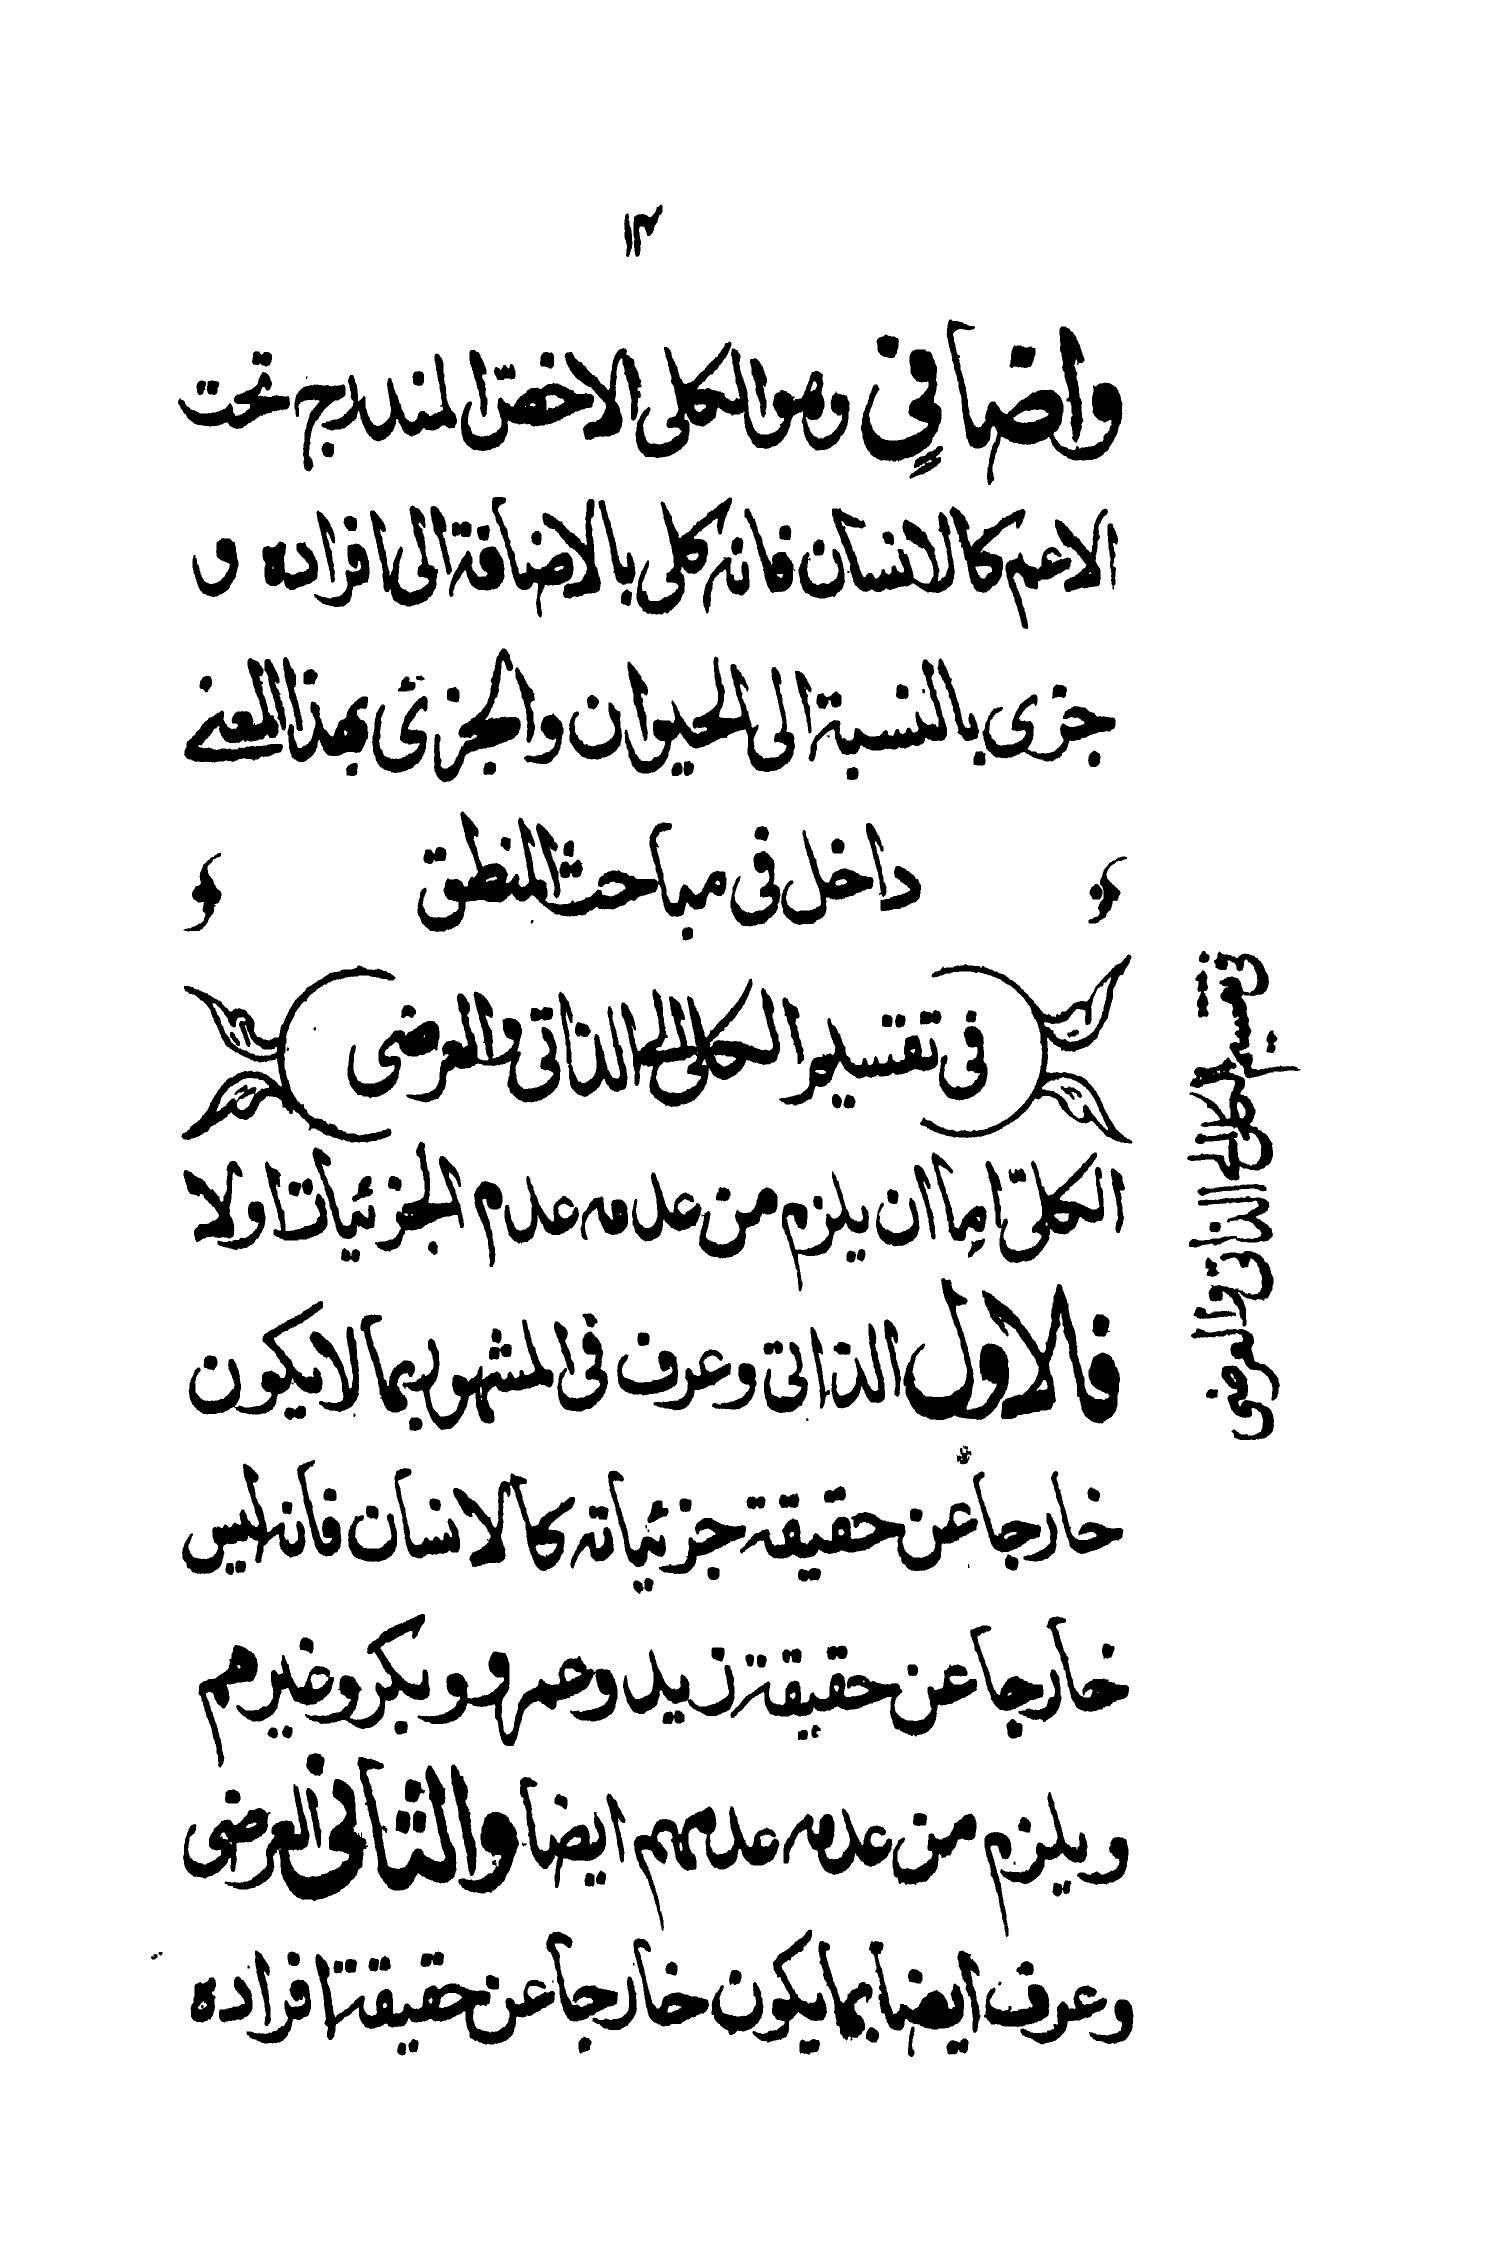 ١٣
واضافي وهو الكلى الاخصّ المندرج تحت
الاعم كالانسان فانه كلى بالاضافة الى افراده و
جزى بالنسبة الى الحيوان والجزئى بهذا المعنے
داخل فى مباحث المنطق
فى تقسيم الكلى الى الذاتى والعرضى
فى تقسيم الكلى الى الذاتى والعرضى
الكلىّ اما ان يلزم من عدمه عدم الجزئيات اولا
فالاول الذاتى وعرف فى المشهور بما لا يكون
خارجا عن حقيقة جزئياته كالانسان فانه ليس
خارجا عن حقيقة زيد وعمرو وبكر وغيرهم
ويلزم من عدمه عدمهم ايضا والثانى العرضى
وعرف ايضا بما يكون خارجا عن حقيقة افراده